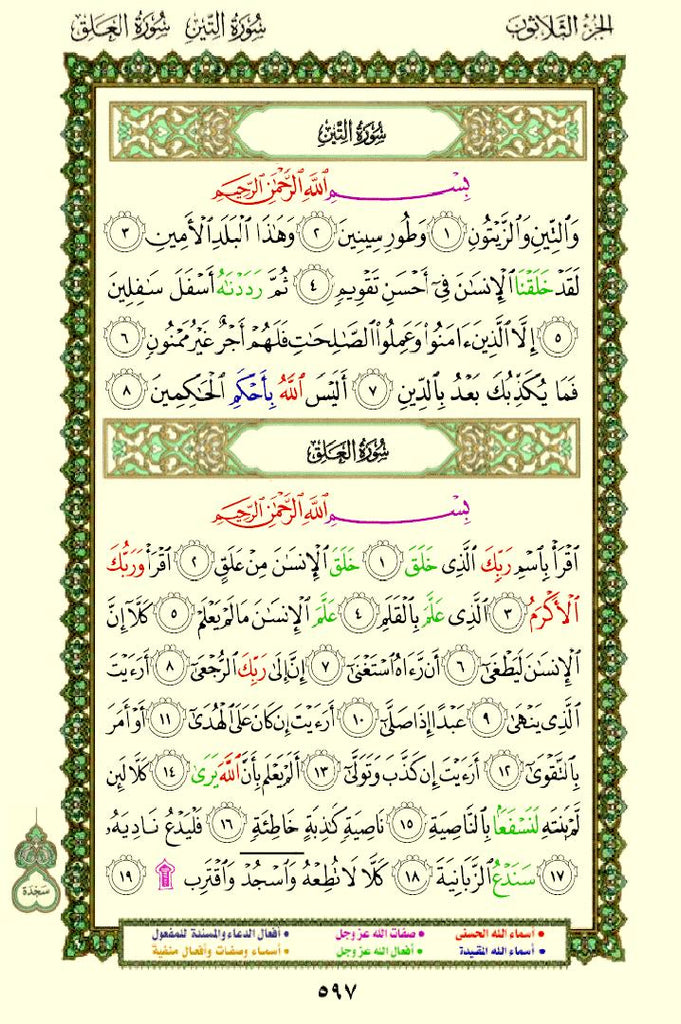 الجزء الثلاثون
سُورَةُ التِّينِ سُورَةُ العَلَقِ
سُورَةُ التِّينِ
بِسْمِ ٱللَّهِ ٱلرَّحْمَٰنِ ٱلرَّحِيمِ
وَٱلتِّينِ وَٱلزَّيْتُونِ ١ وَطُورِ سِينِينَ ٢ وَهَٰذَا ٱلْبَلَدِ ٱلْأَمِينِ ٣
لَقَدْ خَلَقْنَا ٱلْإِنسَٰنَ فِىٓ أَحْسَنِ تَقْوِيمٍ ٤ ثُمَّ رَدَدْنَٰهُ أَسْفَلَ سَٰفِلِينَ
٥ إِلَّا ٱلَّذِينَ ءَامَنُوا۟ وَعَمِلُوا۟ ٱلصَّٰلِحَٰتِ فَلَهُمْ أَجْرٌ غَيْرُ مَمْنُونٍ ٦
فَمَا يُكَذِّبُكَ بَعْدُ بِٱلدِّينِ ٧ أَلَيْسَ ٱللَّهُ بِأَحْكَمِ ٱلْحَٰكِمِينَ ٨
سُورَةُ العَلَقِ
بِسْمِ ٱللَّهِ ٱلرَّحْمَٰنِ ٱلرَّحِيمِ
ٱقْرَأْ بِٱسْمِ رَبِّكَ ٱلَّذِى خَلَقَ ١ خَلَقَ ٱلْإِنسَٰنَ مِنْ عَلَقٍ ٢ ٱقْرَأْ وَرَبُّكَ
ٱلْأَكْرَمُ ٣ ٱلَّذِى عَلَّمَ بِٱلْقَلَمِ ٤ عَلَّمَ ٱلْإِنسَٰنَ مَا لَمْ يَعْلَمْ ٥ كَلَّآ إِنَّ
ٱلْإِنسَٰنَ لَيَطْغَىٰٓ ٦ أَن رَّءَاهُ ٱسْتَغْنَىٰٓ ٧ إِنَّ إِلَىٰ رَبِّكَ ٱلرُّجْعَىٰٓ ٨ أَرَءَيْتَ
ٱلَّذِى يَنْهَىٰ ٩ عَبْدًا إِذَا صَلَّىٰٓ ١٠ أَرَءَيْتَ إِن كَانَ عَلَى ٱلْهُدَىٰٓ ١١ أَوْ أَمَرَ
بِٱلتَّقْوَىٰٓ ١٢ أَرَءَيْتَ إِن كَذَّبَ وَتَوَلَّىٰٓ ١٣ أَلَمْ يَعْلَم بِأَنَّ ٱللَّهَ يَرَىٰ ١٤ كَلَّا لَئِن
لَّمْ يَنتَهِ لَنَسْفَعًۢا بِٱلنَّاصِيَةِ ١٥ نَاصِيَةٍ كَٰذِبَةٍ خَاطِئَةٍ ١٦ فَلْيَدْعُ نَادِيَهُۥ
١٧ سَنَدْعُ ٱلزَّبَانِيَةَ ١٨ كَلَّا لَا تُطِعْهُ وَٱسْجُدْ وَٱقْتَرِب ۩ ١٩
سَجْدَة
• أسماء الله الحسنى • صفات الله عز وجل • أفعال الدعاء والمسندة للمفعول
• أسماء الله المقيدة • أفعال الله عز وجل • أسماء وصفات وأفعال منفية
٥٩٧